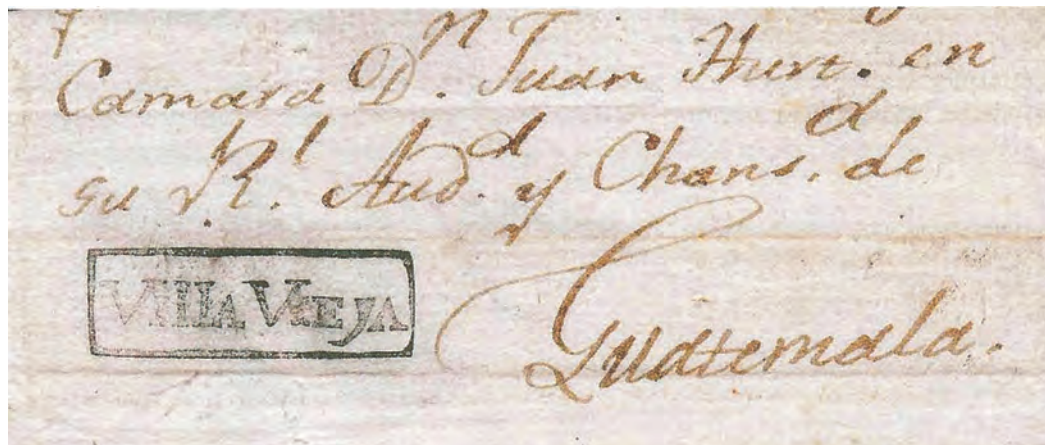 Camara D.n Juan Hurt. en
su R.l Aud.d y Chans.d de
VILLA VIEJA
Guatemala.